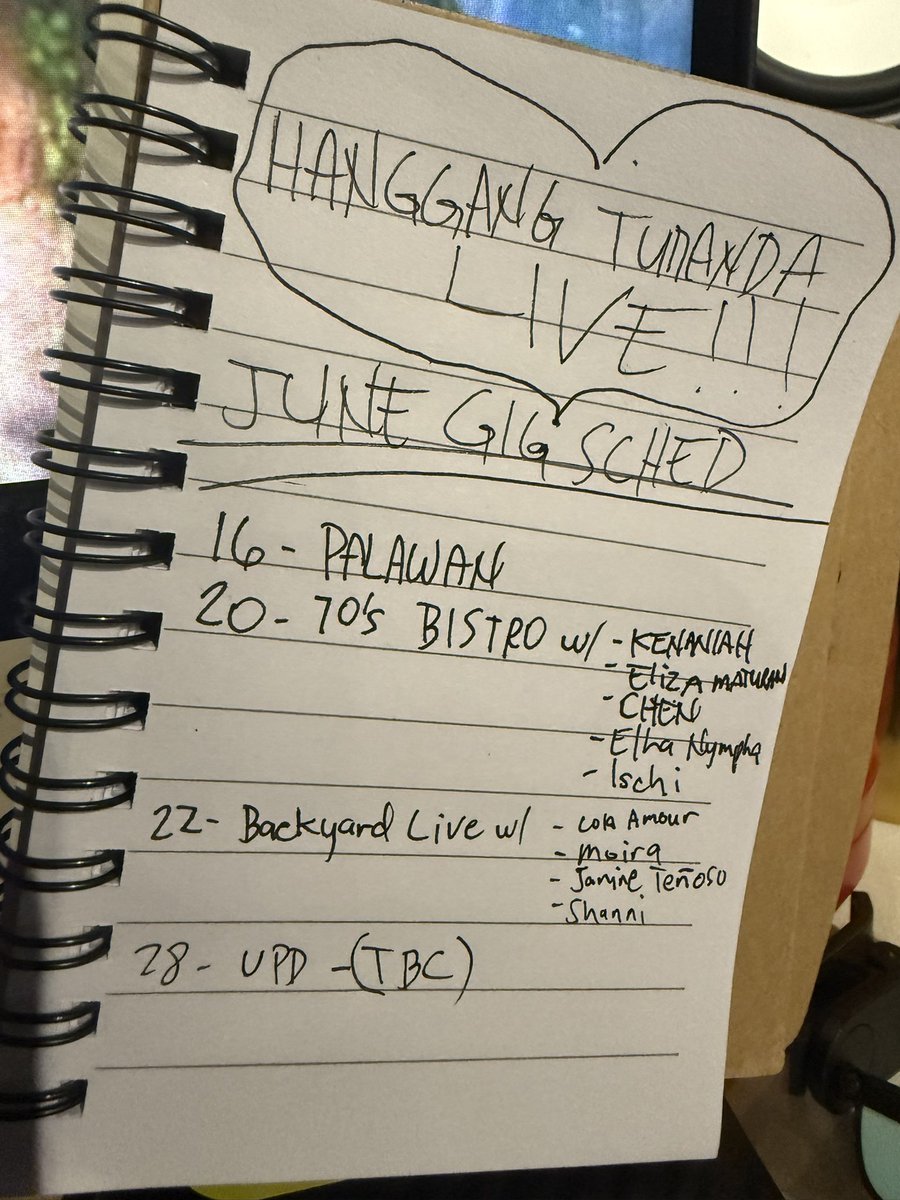 HANGGANG TUMANDA
LIVE!!!
JUNE GIG SCHED
16 - PALAWAN
20 - 70's BISTRO w/ - KENANIAH
- Eliza MATURAN
- CHEN
- Elha Nympha
- Ischi
22 - Backyard Live w/ - Lola Amour
- Moira
- Janine Teñoso
- Shanni
28 - UPD - (TBC)